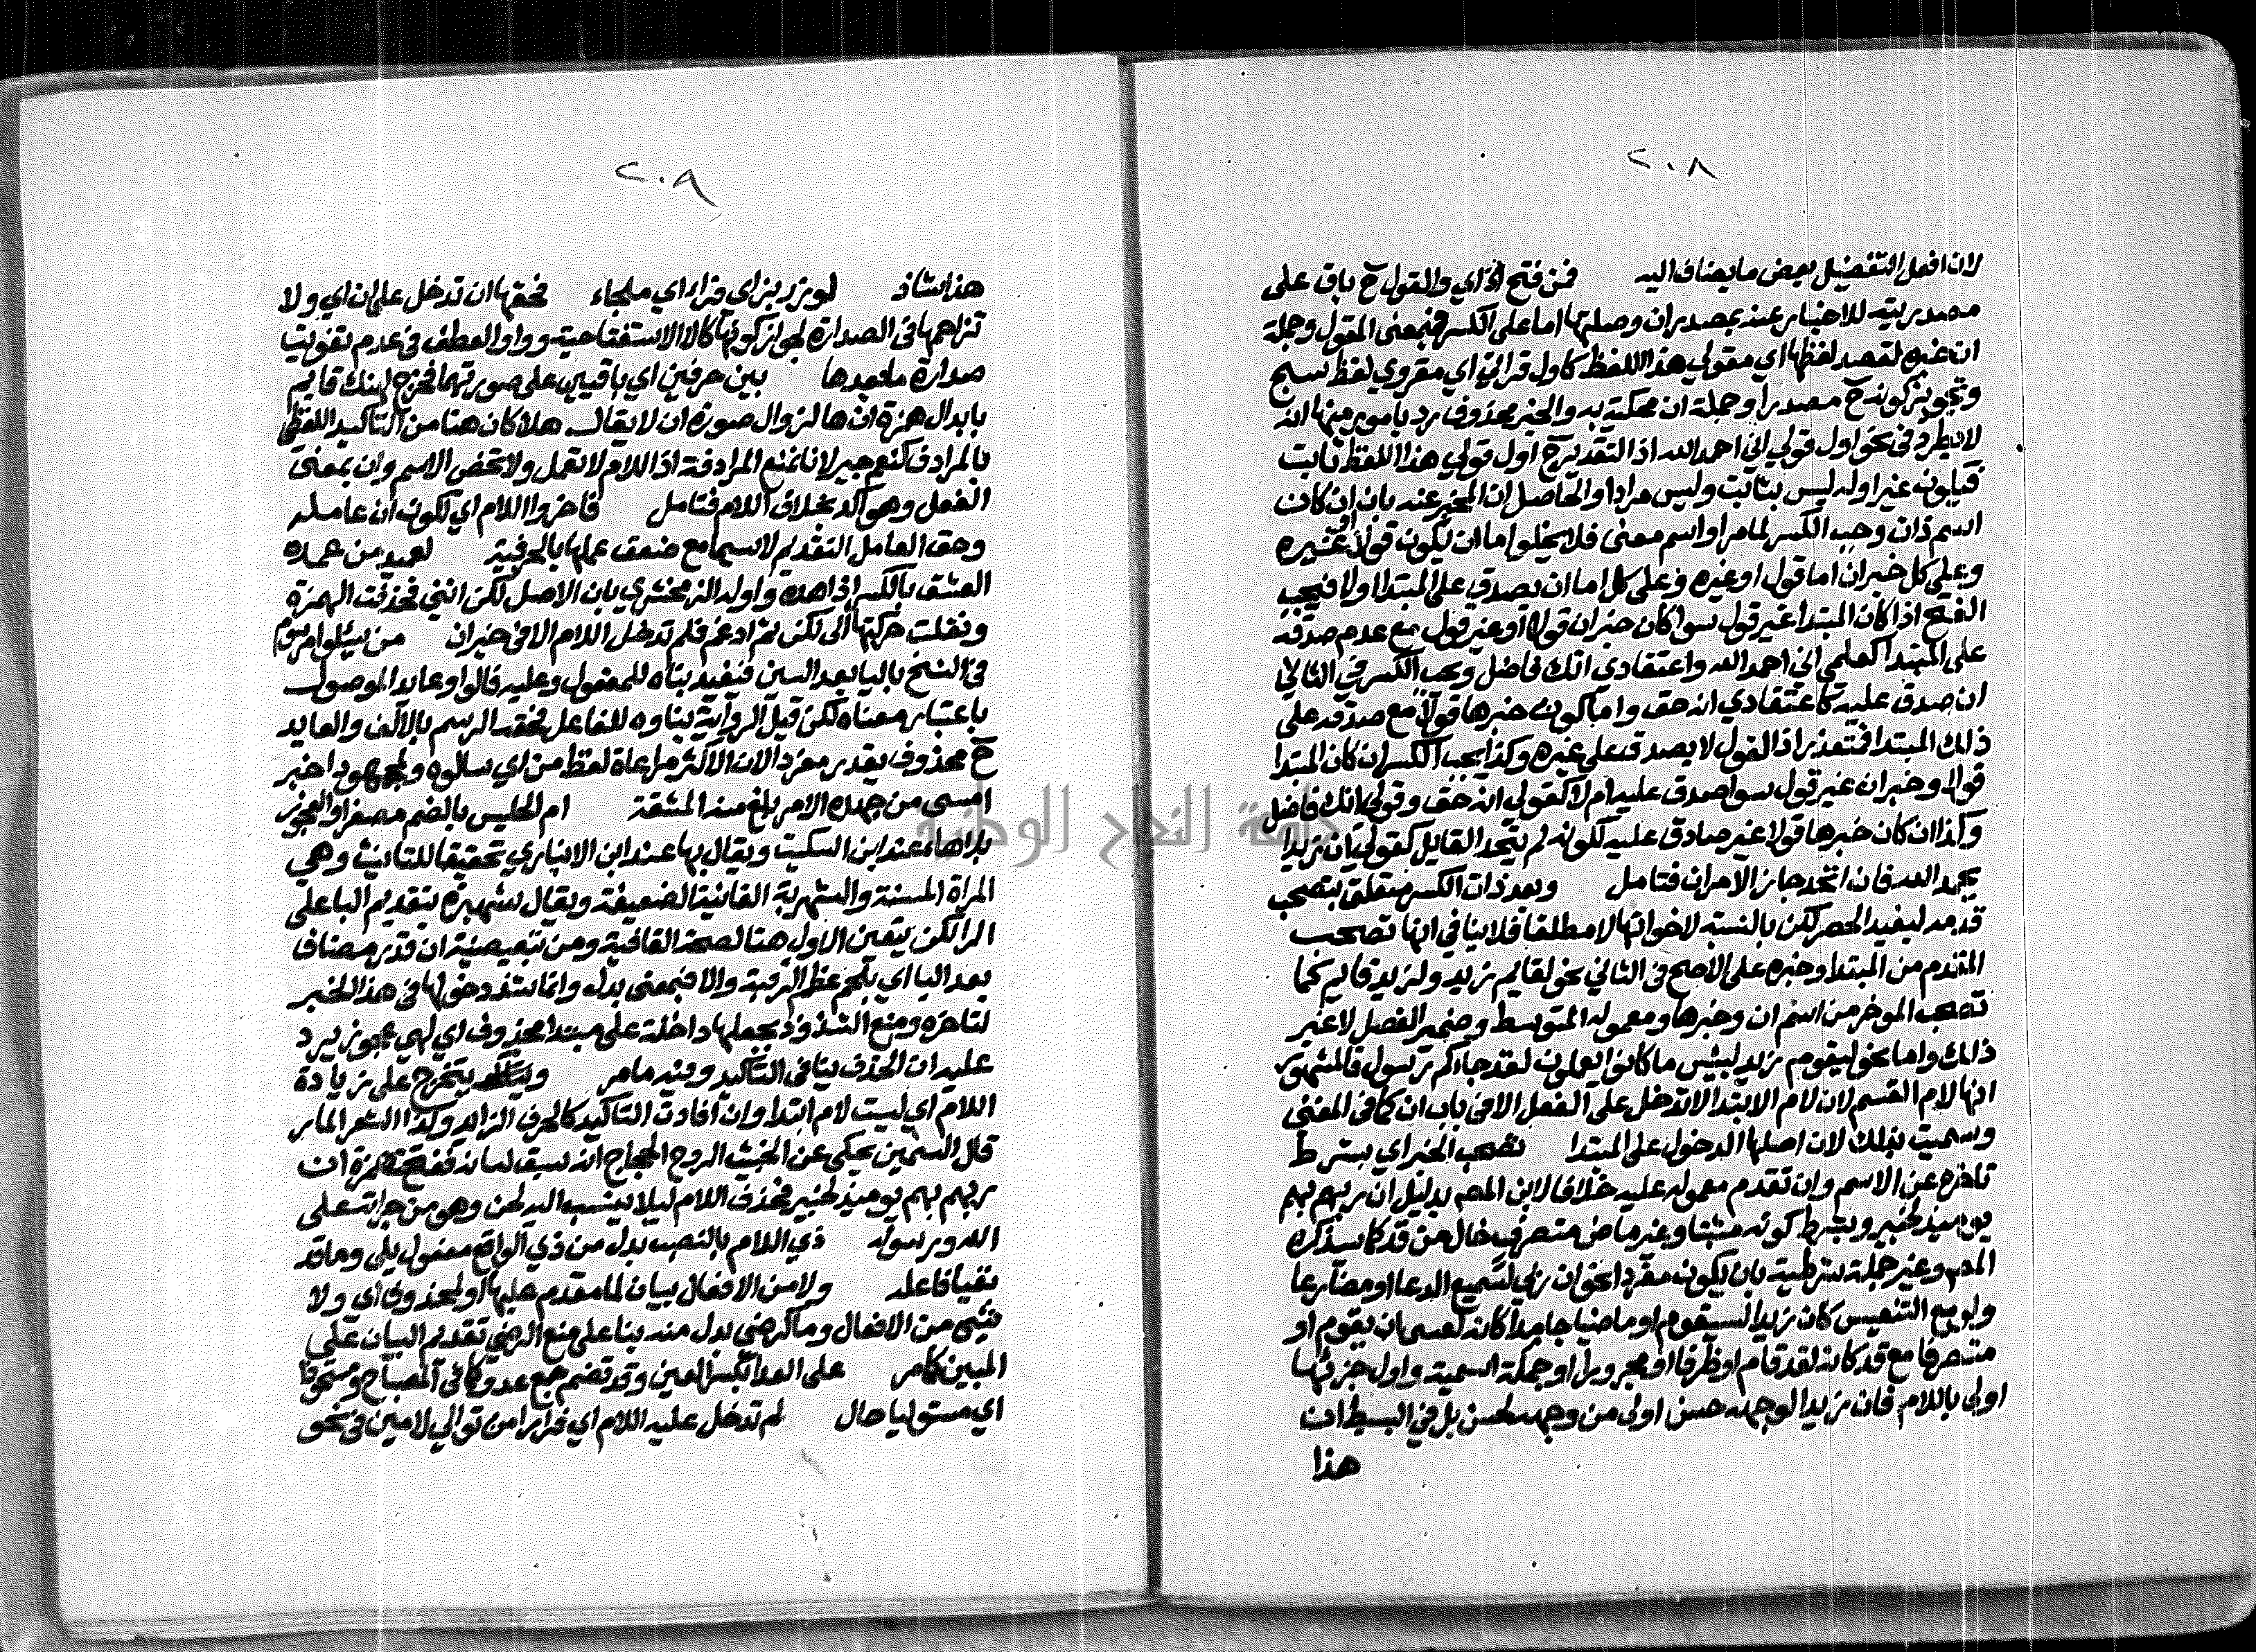 ٢٠٨
لان افعل التفضيل بعض ما يضاف اليه فمن فتح ان اي والقول ح باق على
مصدريته للاخبار عنه بمصدر ان وصلتها اما على الكسر فبمعنى المقول وجملة
ان خبره لقصد لفظها اي مقولي هذا اللفظ كاول قراتي اي مقروي لفظ سبح
وتجويز كونه ح مصدرا وجملة ان محكية به والخبر محذوف يرد بامور منها انه
لا يطرد في نحو اول قولي اني احمد الله اذ التقدير ح اول قولي هذا اللفظ ثابت
فيكون غير اوله ليس بثابت وليس مرادا والحاصل ان المخبر عنه بان ان كان
اسم ذات وجب الكسر لما مر او اسم معنى فلا يخلوا اما ان يكون قولا او غيره
وعلى كل خبر ان اما قول او غيره وعلى كل اما ان يصدق على المبتدا اولا فيجب
الفتح اذا كان المبتدا غير قول سوا كان خبر ان قولا او غير قول مع عدم صدقه
على المبتدا كعلمي اني احمد الله واعتقادي انك فاضل ويجب الكسر في الثاني
ان صدق عليه كاعتقادي انه حق واما كون خبرها قولا مع صدقه على
ذلك المبتدا فتعذر اذ القول لا يصدق على غيره وكذا يجب الكسر ان كان المبتدا
قولا وخبر ان غير قول سوا صدق عليه ام لا كقولي انه حق وقولي انك فاضل
وكذا ان كان خبرها قولا غير صادق عليه لكونه لم يتحد القايل كقولي ان زيدا
يحمد الله فان اتحد جاز الامران فتامل وبعد ذات الكسر متعلق بتصحب
قدمه ليفيد الحصر لكن بالنسبة لاخواتها لا مطلقا فلا ينافي انها تصحب
المتقدم من المبتدا وخبره على الاصح في الثاني نحو لقايم زيد ولزيد قايم كما
تصحب الموخر من اسم ان وخبرها ومعموله المتوسط وضمير الفصل لا غير
ذلك واما نحو ليقوم زيد لبئس ما كانوا يعملون لقد جاءكم رسول فالمشهور
انها لام القسم لان لام الابتدا لا تدخل على الفعل الا في باب ان كما في المغني
وسميت بذلك لان اصلها الدخول على المبتدا تصحب الخبر اي بشرط
تاخره عن الاسم وان تقدم معموله عليه خلافا لابن المصـ بدليل ان ربهم بهم
يوميذ لخبير وبشرط كونه مثبتا وغير ماض متصرف خال من قد كما سيذكره
المصـ وغير جملة شرطية بان يكون مفردا نحو ان ربي لسميع الدعا او مضارعا
ولو مع التنفيس كان زيدا لسيقوم او ماضيا جامدا كانه لعسى ان يقوم او
متصرفا مع قد كانه لقد قام او ظرفا او مجرورا او جملة اسمية واول جزئيها
اولى باللام فان زيدا لوجهه حسن اولى من وجهه لحسن بل في البسيط ان
هذا
٢٠٩
هذا شاذ لوزر بزاي فراء اي ملجاء فحقها ان تدخل على ان اي ولا
تزاحمها في الصدارة لجواز كونها كالا الاستفتاحية وواو العطف في عدم تفويت
صدارة ما بعدها بين حرفين اي باقيين على صورتهما فخرج لهنك قايم
بابدال همزة ان ها لزوال صورة ان لا يقال هلا كان هنا من التاكيد اللفظي
بالمرادف كنعم جير لانا نمنع المرادفة اذ اللام لا تعمل ولا تخص الاسم وان بمعنى
الفعل وهو آكد بخلاف اللام فتامل فاخروا اللام اي لكون ان عاملة
وحق العامل التقديم لا سيما مع ضعف عملها بالحرفية لعميد من عمده
العشق بالكسر اذا هده واوله الزمخشري بان الاصل لكن انني فحذفت الهمزة
ونقلت حركتها الى لكن ثم ادغم فلم تدخل اللام الا في خبر ان من سيلوا مرسوم
في النسخ باليا بعد السين فنفيد بناه للمفعول وعليه قالوا وعايد الموصول
باعتبار معناه لكن قيل الرواية بناوه للفاعل فحقه الرسم بالالف والعايد
ح محذوف يقدر مفردا لان الاكثر مراعاة لفظ من اي سالوه ولمجهودا خبر
امسى من جهده الامر بلغ منه المشقة ام الحليس بالضم مصغرا والعجوز
بلا هاء عند ابن السكيت ويقال بها عند ابن الانباري تحقيقا للتانيث وهي
المراة المسنة والشهربة الفانية الضعيفة ويقال شهبرة بتقديم البا على
الرا لكن يتعين الاول هنا لصحة القافية ومن تبعيضية ان قدر مضاف
بعد البا اي بلحم عظم الرقبة والا فبمعنى بدل وانما شذ دخولها في هذا الخبر
لتاخره ومنع الشذوذ بجعلها داخلة على مبتدا محذوف اي لهي عجوز يرد
عليه ان الحذف ينافي التاكيد وفيه ما مر يتخرج على زيادة
اللام اي ليست لام ابتدا وان افادت التاكيد كالحرف الزايد وكذا الشعر المار
قال السمين يحكى عن الخبث الروح الحجاج انه سبق لسانه ففتح همزة ان
ربهم بهم يوميذ لخبير فحذف اللام ليلا ينسب اليه لحن وهو من جراته على
الله ورسوله ذي اللام بالنصب بدل من ذي الواقع مفعول يلي وما قد
نفيا فاعله ولا من الافعال بيان لما مقدم عليها او لمحذوف اي ولا
شيء من الافعال وما كرضي بدل منه بنا على منع الرضي تقديم البيان على
المبين كامر على العدا بكسر العين وقد تضم جمع عدو كما في المصباح ومستحوذا
اي مستوليا حال لم تدخل عليه اللام اي فرارا من توالي لامين في نحو
جامعة النجاح الوطنية